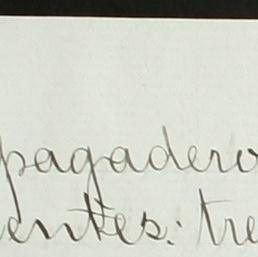 pagadero
entes: tre